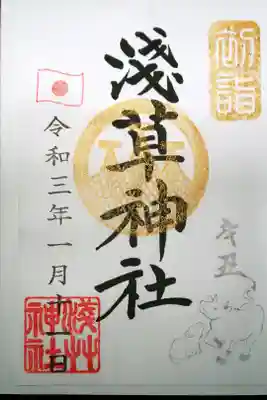 初詣
辛丑
淺草神社
令和三年一月十一日
淺艸
神社